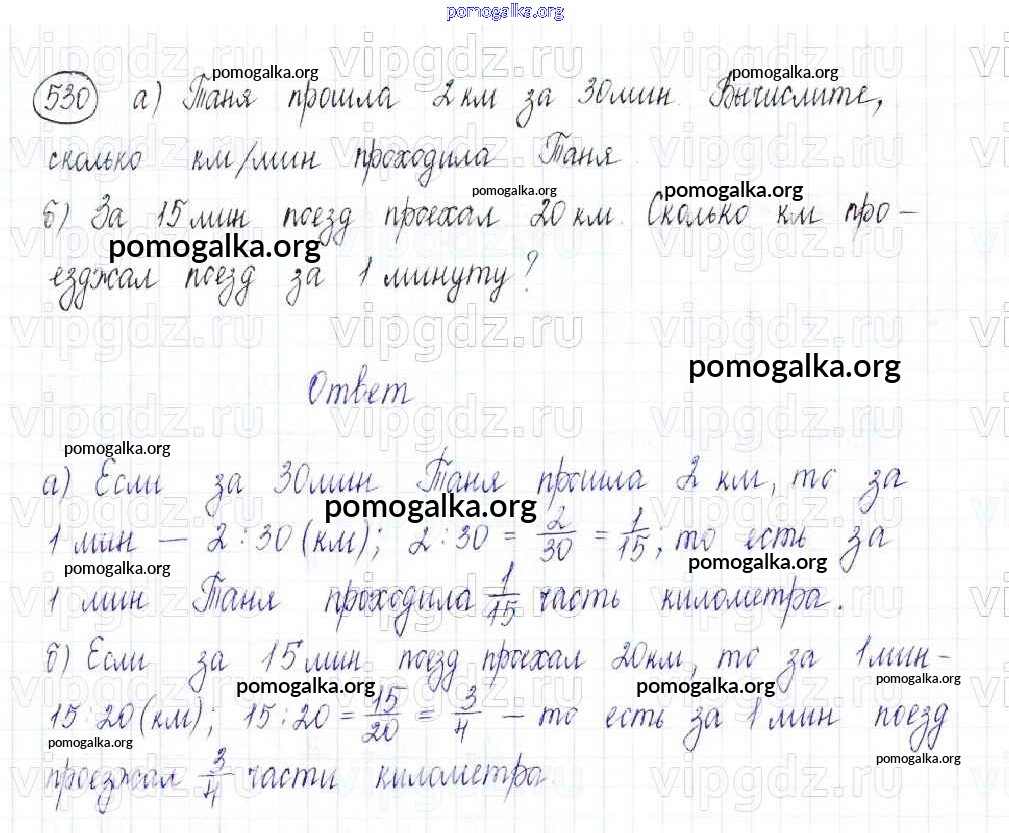 pomogalka.org
530 а) Таня прошла 2 км за 30 мин. Вычислите,
сколько км/мин проходила Таня
б) За 15 мин поезд проехал 20 км. Сколько км про-
езджал поезд за 1 минуту?
Ответ
а) Если за 30 мин Таня прошла 2 км, то за
1 мин — 2:30 (км); 2:30 = 2/30 = 1/15; то есть за
1 мин Таня проходила 1/15 часть километра.
б) Если за 15 мин поезд проехал 20 км, то за 1 мин -
15:20 (км); 15:20 = 15/20 = 3/4 - то есть за 1 мин поезд
проезжал 3/4 части километра.